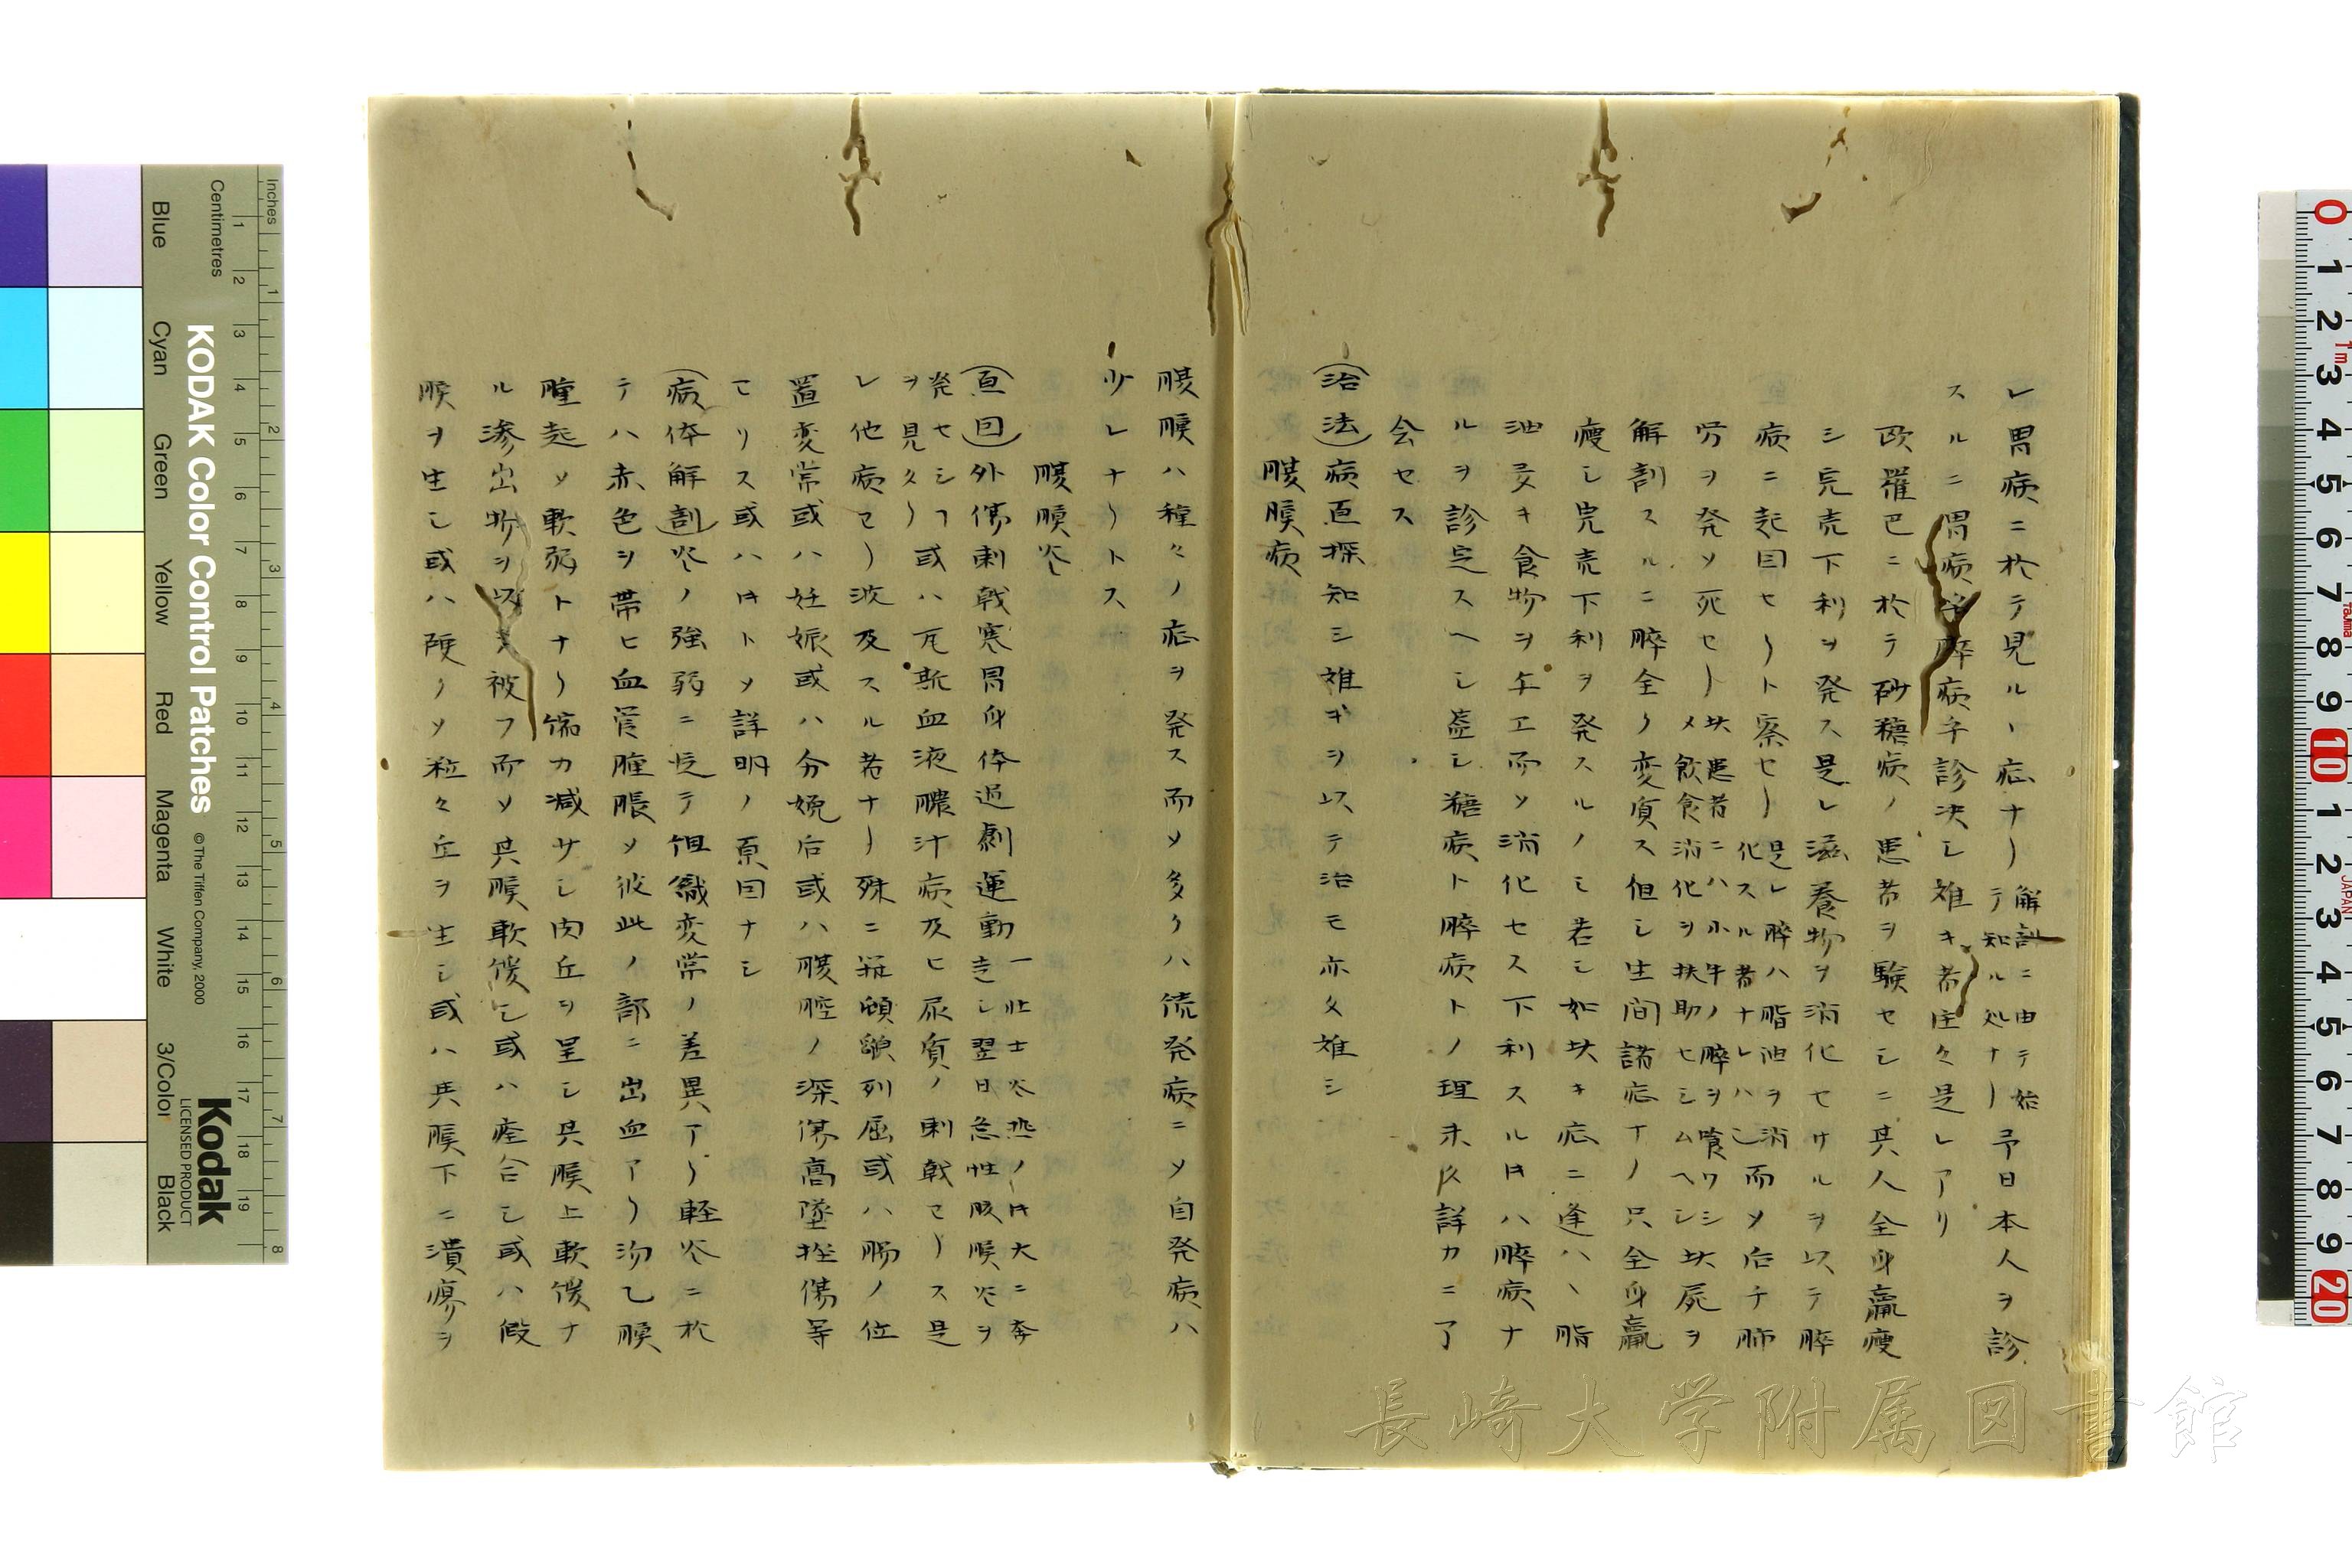 レ胃病ニ於テ見ルヽ症ナリ解剖ニ由テ始テ知ル処ナリ予日本人ヲ診
スルニ胃病乎膵病乎診决シ難キ者徃々是レアリ
欧羅巴ニ於テ砂糖病ノ患者ヲ験セシニ其人全身羸痩
シ完売下利ヲ発ス是レ滋養物ヲ消化セサルヲ以テ膵
病ニ起因セリト察セリ是レ膵ハ脂油ヲ消化スル者ナレハ也而ソ后チ肺
労ヲ発ソ死セリ此患者ニハ小牛ノ膵ヲ喰ワシメ飲食消化ヲ扶助セシムヘシ此屍ヲ
解剖スルニ膵全ク変質ス但シ生間諸症ナク只全身羸
痩シ完売下利ヲ発スルノミ若シ如此キ症ニ逢ハヽ脂
油多キ食物ヲ与エ而ソ消化セス下利スル片ハ膵病ナ
ルヲ診定スヘシ蓋シ糖病ト膵病トノ理未タ詳カニ了
会セス
(治法)病原探知シ難キヲ以テ治モ亦タ難シ
腹膜病
腹膜ハ種々ノ症ヲ発ス而ソ多クハ続発病ニソ自発病ハ
少レナリトス
腹膜炎
(原因)外傷刺戟寒冒身体過劇運動一壮士炎熱ノ片大ニ奔走シ翌日急性腹膜炎ヲ
発セシヿヲ見タリ或ハ瓦斯血液膿汁病及ヒ尿質ノ刺戟セリス是
レ他病ヨリ波及スル者ナリ殊ニ列屈或ハ腸ノ位
置変常或ハ妊娠或ハ分娩后或ハ腹腔ノ深傷高墜挫傷等
ヨリス或ハ片トソ詳明ノ原因ナシ
(病体解剖)炎ノ強弱ニ従テ組織変常ノ差異アリ軽炎ニ於
テハ赤色ヲ帯ヒ血管腫脹ソ彼此ノ部ニ出血アリ沕乙膜
腫起ソ軟弱トナリ弾力减サシ肉丘ヲ呈シ其膜上軟緩ナ
ル滲出物ヲ以テ被フ而ソ其膜軟緩シ或ハ癒合シ或ハ假
膜ヲ生シ或ハ硬クソ粒々丘ヲ生シ或ハ其膜下ニ潰瘍ヲ
KODAK Color Control Patches
© The Tiffen Company, 2000
Kodak
LICENSED PRODUCT
Inches
Centimetres
Blue
Cyan
Green
Yellow
Red
Magenta
White
3/Color
Black
長崎大学附属図書館